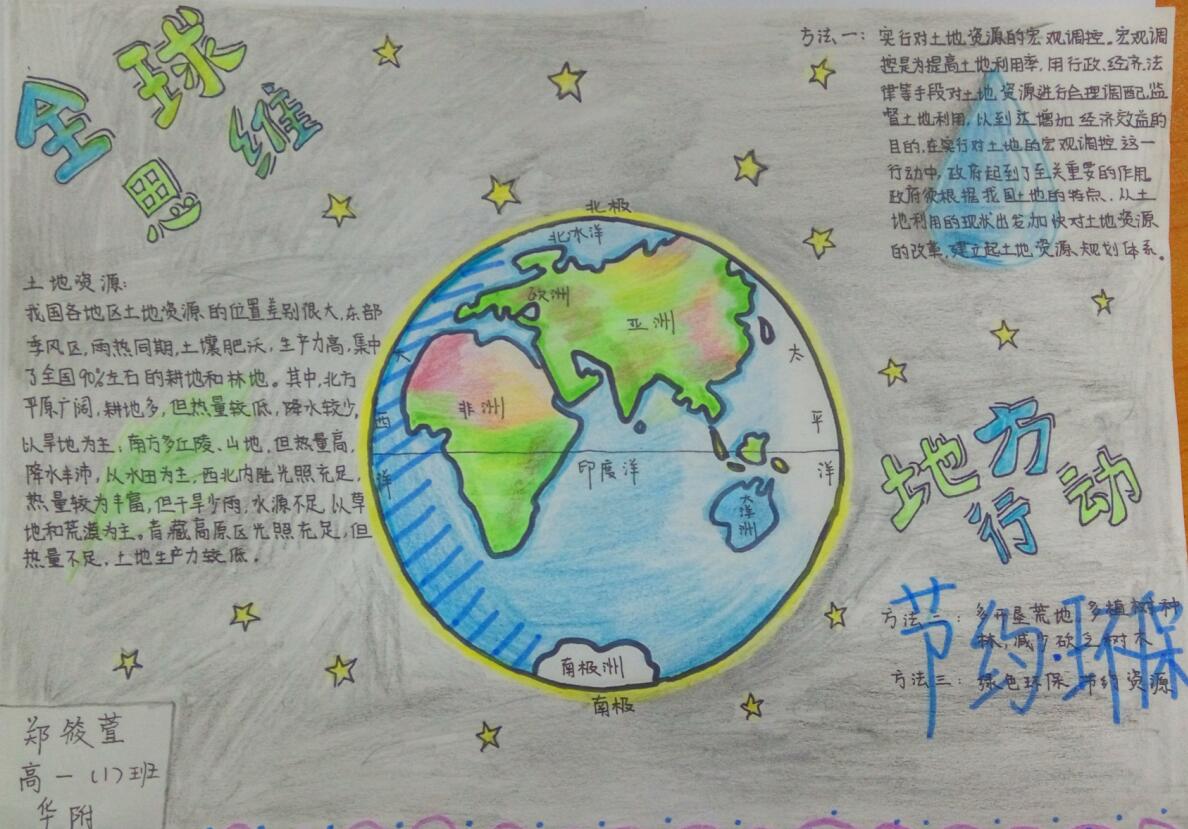 全球
思维
土地资源:
我国各地区土地资源的位置差别很大,东部
季风区,雨热同期,土壤肥沃,生产力高,集中
了全国90%左右的耕地和林地。其中,北方
平原广阔,耕地多,但热量较低,降水较少,
以旱地为主;南方多丘陵、山地,但热量高,
降水丰沛,从水田为主,西北内陆光照充足,
热量较为丰富,但干旱少雨,水源不足,以草
地和荒漠为主。青藏高原区光照充足,但
热量不足,土地生产力较低。
郑筱萱
高一(1)班
华附
北极
北冰洋
欧洲
亚洲
非洲
大西洋
太平洋
印度洋
大洋洲
南极洲
南极
方法一:实行对土地资源的宏观调控。宏观调
控是为提高土地利用率,用行政、经济、法
律等手段对土地资源进行合理调配,监
督土地利用,以到达增加经济效益的
目的,在实行对土地的宏观调控这一
行动中,政府起到了至关重要的作用。
政府须根据我国土地的特点、从土
地利用的现状出发,加快对土地资源
的改革,建立起土地资源规划体系。
地方
行动
方法二:多开垦荒地,多植树种
林,减少砍乏树木
方法三:绿色环保 节约资源
节约·环保